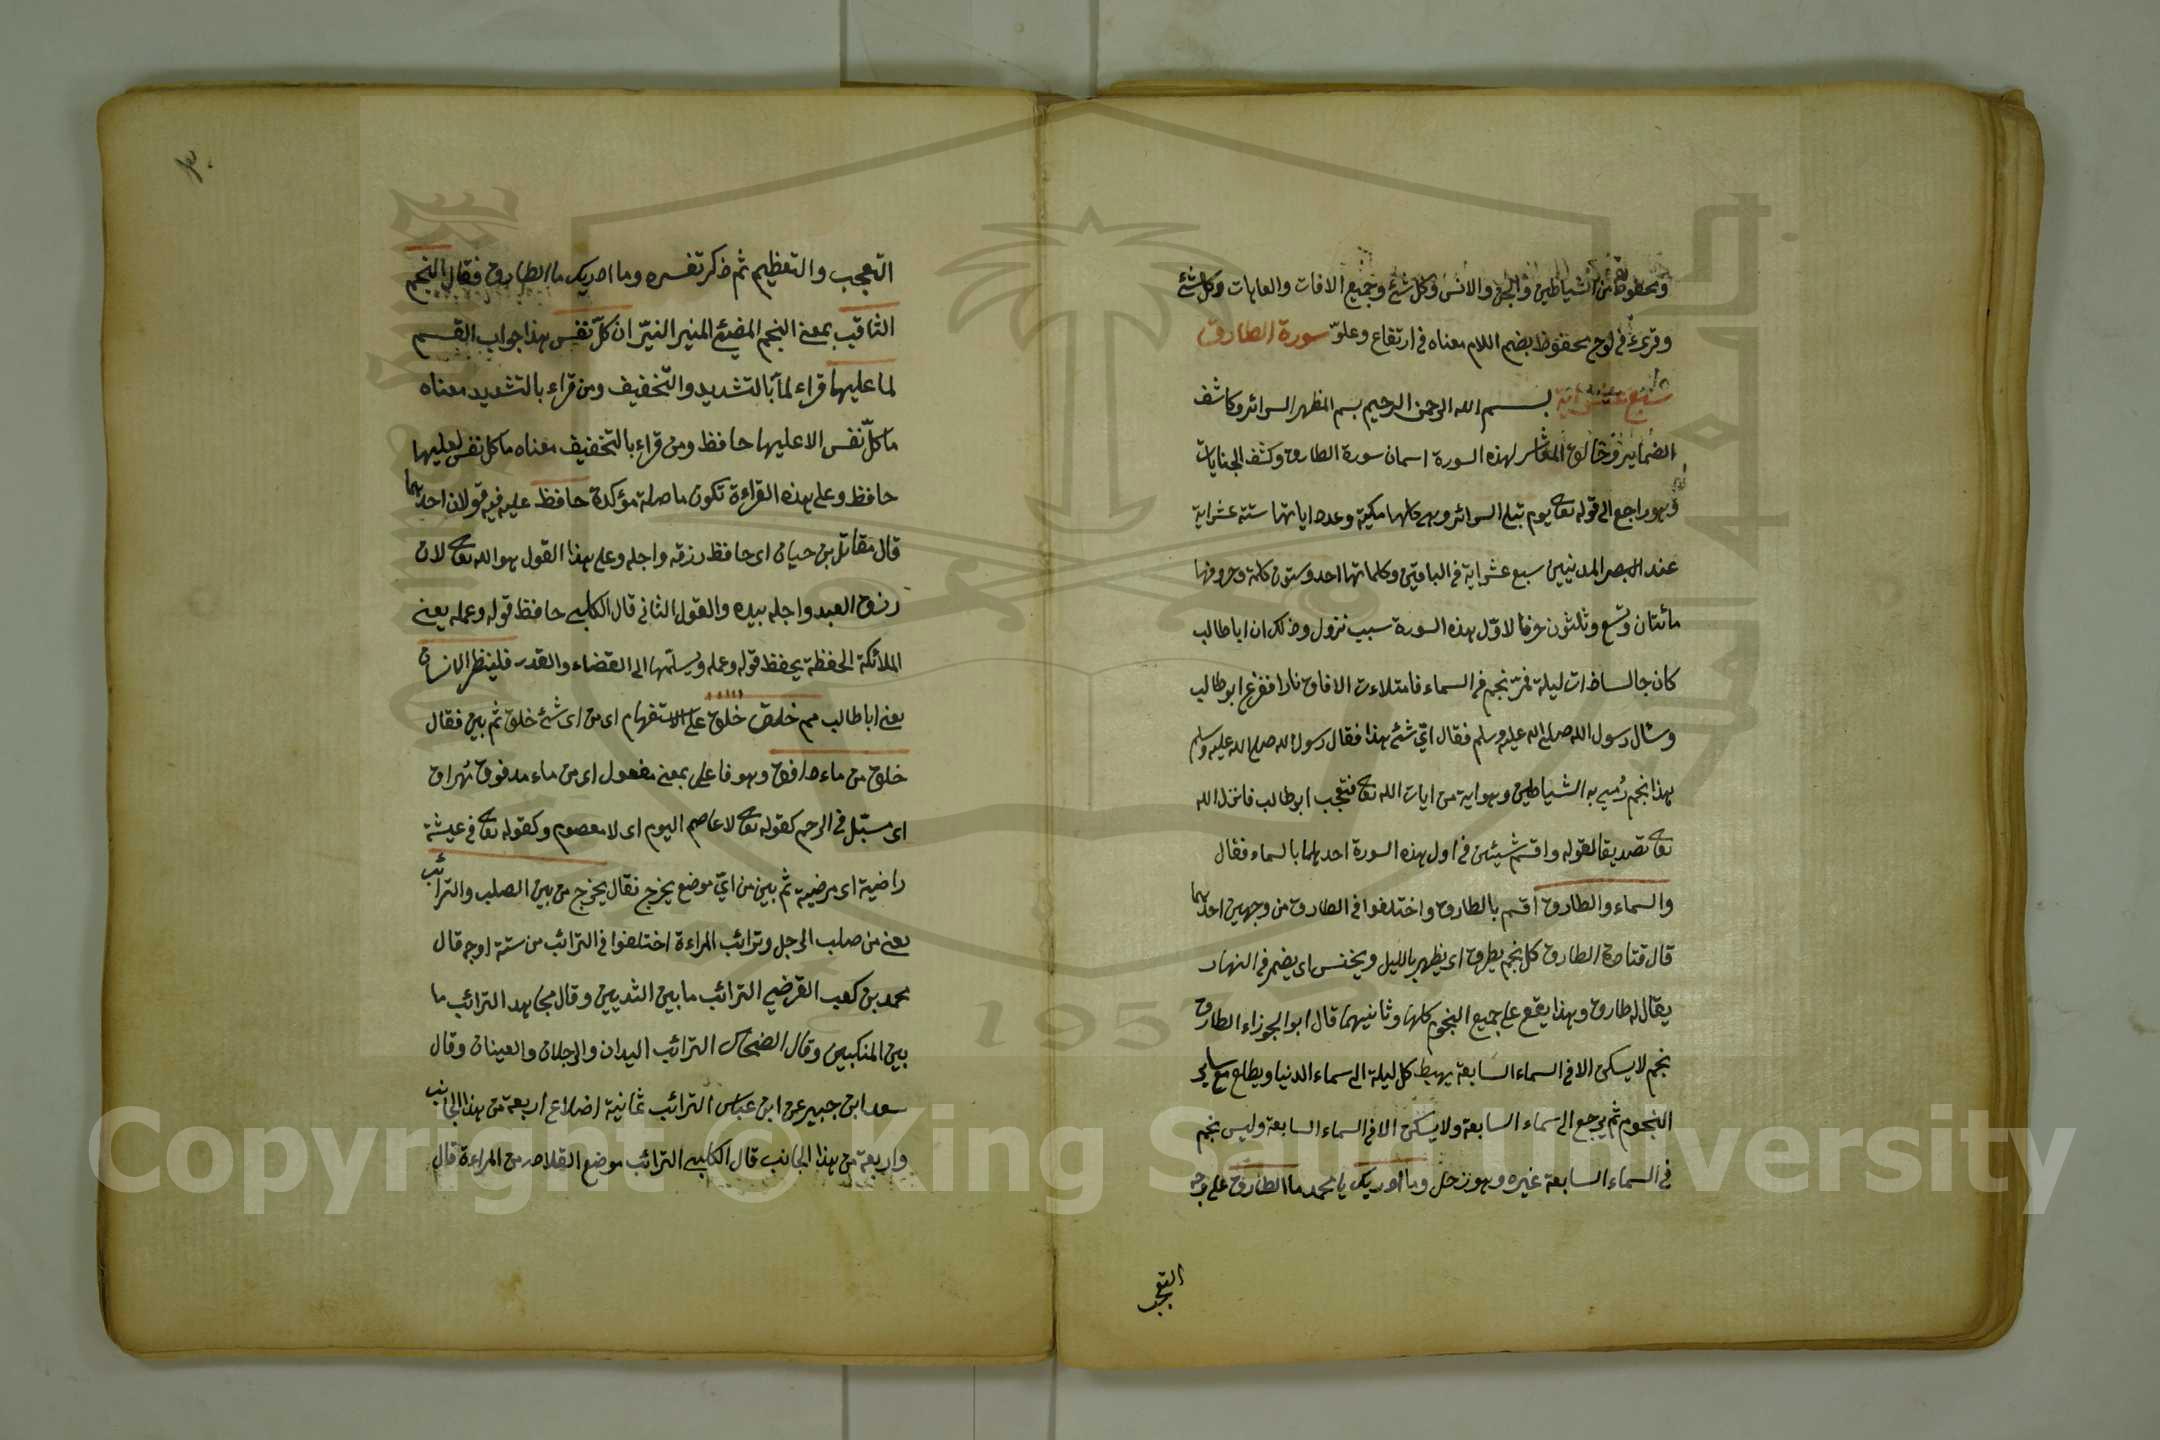 ومحفوظ من الشياطين والجن والانس وكل شئ وجميع الافات والعاهات وكل شئ
وقرئ في لوح محفوظ بضم اللام معناه في ارتفاع وعلوّ سورة الطارق
سبع عشر اية بسم الله الرحمن الرحيم بسم المظهر السرائر وكاشف
الضماير وخالق لهذه السورة اسمان سورة الطارق وكشف الجنايات
وهو راجع الى قوله تعا يوم تبلى السرائر وهي كلها مكية وعدد اياتها ستة عشر اية
عند المدنيين سبع عشر اية في الباقين وكلماتها احد وستون كلمة وحروفها
مائتان وتسع وثلثون حرفا لاوّل هذه السورة سبب نزول وذلك ان ابا طالب
كان جالسا ذات ليلة فمرّ نجم في السماء فامتلاءت الافاق نارا ففزع ابو طالب
وسال رسول الله صلى الله عليه وسلم فقال ايّ شئ هذا فقال رسول الله صلى الله عليه وسلم
هذا نجم رُمي به الشياطين وهو اية من ايات الله تعا فتعجب ابو طالب فانزل الله
تعا تصديقا لقوله واقسم شيئين في اول هذه السورة احدهما بالسماء فقال
والسماء والطارق اقسم بالطارق واختلفوا في الطارق من وجهين احدهما
قال قتادة الطارق كل نجم يطرق اى يظهر بالليل ويخنس اى يضمر في النهار
يقال له طارق وهذا يقع على جميع النجوم كلها وثانيهما قال ابو الجوزاء الطارق
نجم لا يسكن الا في السماء السابعة يهبط كل ليلة الى سماء الدنيا ويطلع مع ساير
النجوم ثم يرجع الى سماء السابعة ولا يسكن الا في السماء السابعة وليس نجم
في السماء السابعة غيره وهو زحل وما ادريك يا محمد ما الطارق على وجه
التعجب
٣٠
التعجب والتعظيم ثم ذكر تفسره وما ادريك ما الطارق فقال النجم
الثاقب بمعنى النجم المضئ المنير النيّر ان كلّ نفس هذا جواب القسم
لما عليها قراء لمّا بالتشديد والتخفيف ومن قراء بالتشديد معناه
ما كلّ نفس الا عليها حافظ ومن قراء بالتخفيف معناه ما كل نفس لعليها
حافظ وعلى هذه القراءة تكون ما صلة مؤكدة حافظ عليه فيه قولان احدهما
قال مقاتل بن حيان اى حافظ رزقه واجله وعلى هذا القول هو الله تعا لان
رزق العبد واجله بيده والقول الثانى قال الكلبي حافظ قوله وعمله يعنى
الملائكة الحفظة يحفظ قوله وعمله ويسلمها الى القضاء والقدر فلينظر الانسان
يعنى ابا طالب مم خلق خلق على الاستفهام اى من اى شئ خلق ثم بين فقال
خلق من ماء دافق وهو فاعل بمعنى مفعول اى من ماء مدفوق مُهراق
اى مسبّل في الرحم كقوله تعا لا عاصم اليوم اى لا معصوم وكقوله تعا في عيشة
راضية اى مرضية ثم بين من ايّ موضع يخرج فقال يخرج من بين الصلب والترائب
يعنى من صلب الرجل وترائب المراءة اختلفوا في الترائب من ستة اوجه قال
محمد بن كعب القرضي الترائب ما بين الثديين وقال مجاهد الترائب ما
بين المنكبين وقال الضحاك الترائب اليدان والرجلان والعينان وقال
سعد ابن جبير عن ابن عباس الترائب ثمانية اضلاع اربعة من هذا الجانب
واربعة من هذا الجانب قال الكلبي الترائب موضع القلادة من المراءة قال
1957
Copyright © King Saud University